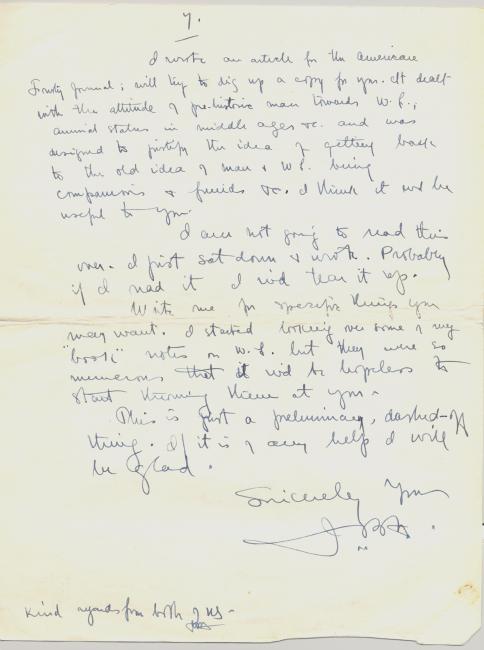 7.
I wrote an article for the American
Forestry Journal; will try to dig up a copy for you. It dealt
with the attitude of pre-historic man towards W.L.,
animal status in middle ages &c. and was
designed to justify the idea of getting back
to the old idea of man & W.L. being
companions & friends &c. I think it wd be
useful to you.
I am not going to read this
over. I just sat down & wrote. Probably
if I read it I wd tear it up.
Write me for specific things you
may want. I started looking over some of my
"book" notes on W.L. but they were so
numerous that it wd be hopeless to
start throwing them at you.
This is just a preliminary, dashed-off
thing. If it is of any help I will
be glad.
Sincerely Yours
Kind regards from both of us -